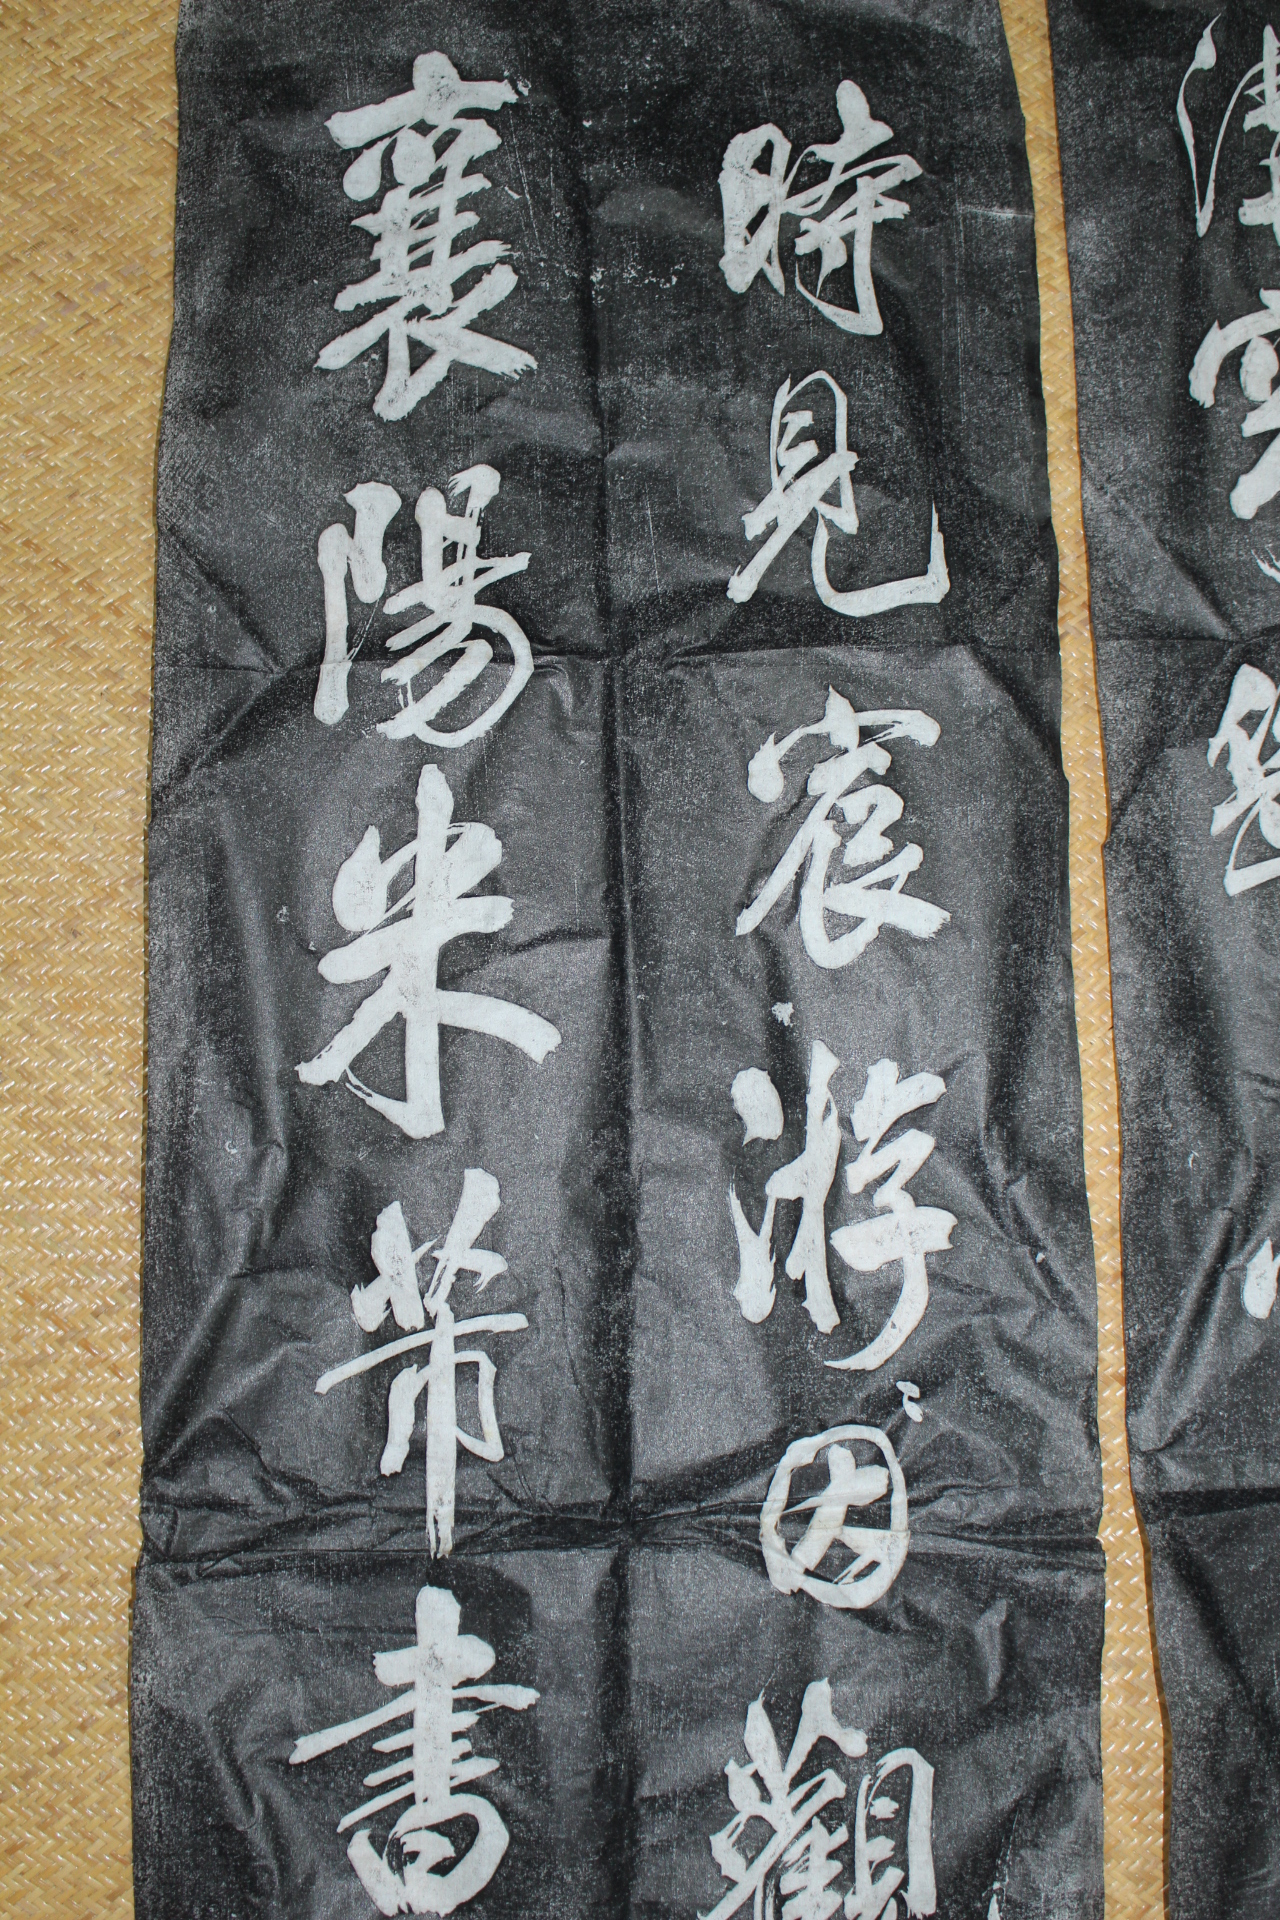 時見宸游因觀
襄陽米芾書